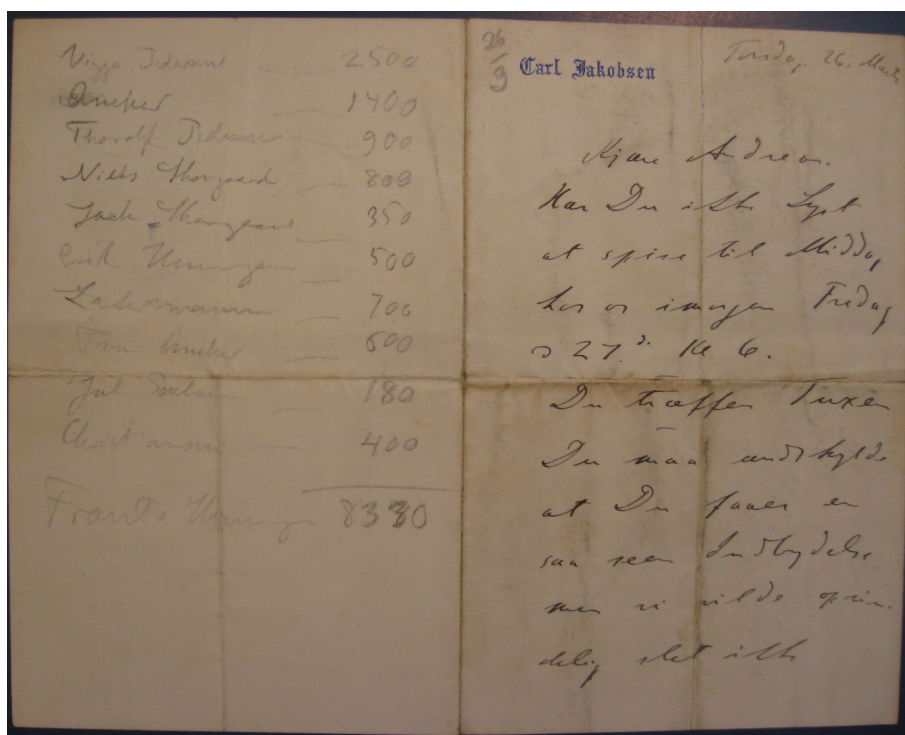 Viggo Pedersen — 2500
Ancher — 1400
Thorolf Pedersen — 900
Niels Skovgaard — 800
Joak. Skovgaard — 350
Erik Henningsen 500
Zacho 700
Fru Ancher — 600
Jul Paulsen 180
Christiansen — 400
Frants Henningsen 8330
26/3
Carl Jakobsen
Torsdag 26. Marts
Kjære Andrea.
Har Du ikke Lyst
at spise til Middag
hos os imorgen Fredag
d 27d. Kl 6.
Du træffer Tuxen
Du maa undskylde
at Du faaer en
saa seen Indbydelse
men vi vilde oprin-
delig slet ikke